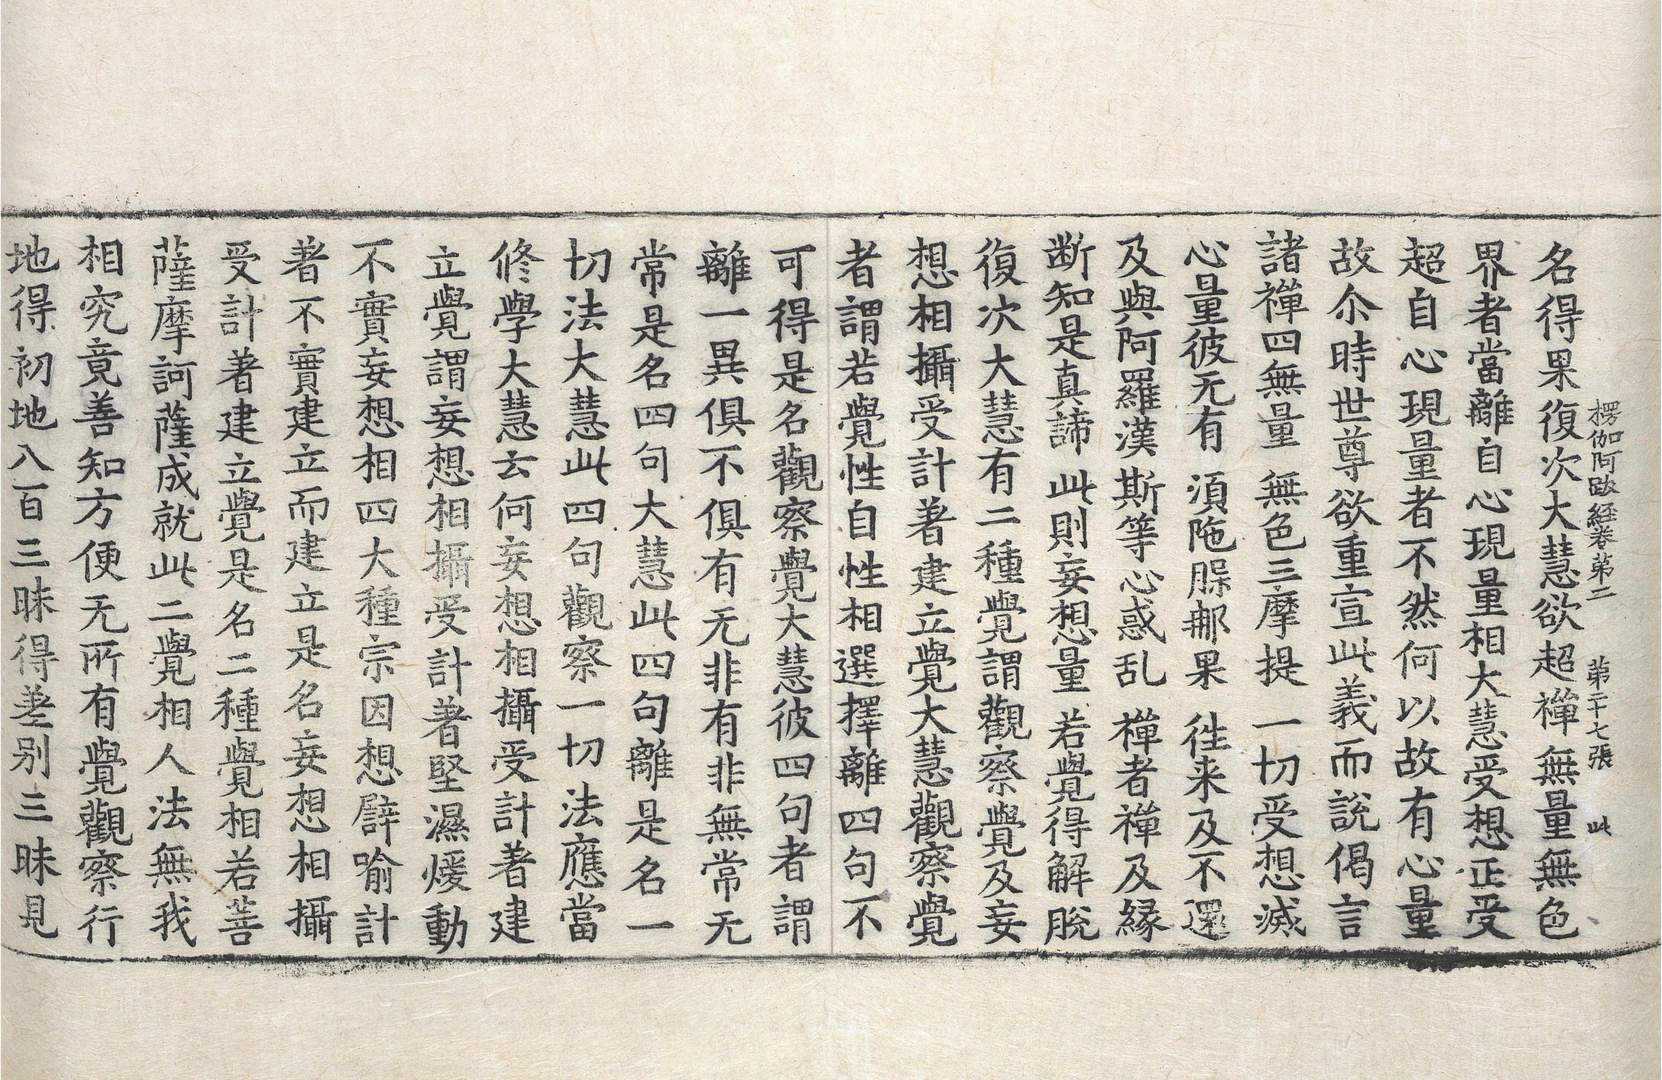 楞伽阿跋經卷第二 第二十七張 此
名得果復次大慧欲超禪無量無色
界者當離自心現量相大慧受想正受
超自心現量者不然何以故有心量
故尒時世尊欲重宣此義而說偈言
諸禪四無量 無色三摩提 一切受想滅
心量彼无有 湏陁膑郍果 徃来及不還
及與阿羅漢 斯等心惑乱 禪者禪及緣
断知是真諦 此則妄想量 若覺得解脫
復次大慧有二種覺謂觀察覺及妄
想相攝受計著建立覺大慧觀察覺
者謂若覺性自性相選擇離四句不
可得是名觀察覺大慧彼四句者謂
離一異俱不俱有无非有非無常无
常是名四句大慧此四句離是名一
切法大慧此四句觀察一切法應當
修學大慧云何妄想相攝受計著建
立覺謂妄想相攝受計著堅濕煖動
不實妄想相四大種宗因想譬喻計
著不實建立而建立是名妄想相攝
受計著建立覺是名二種覺相若菩
薩摩訶薩成就此二覺相人法無我
相究竟善知方便无所有覺觀察行
地得初地入百三昧得差别三昧見